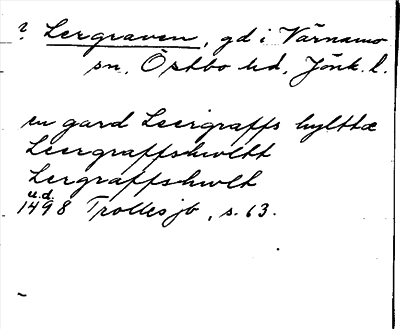 ? Lergraven, gd i Värnamo
sn, Östbo hd, Jönk. l.
en gard Leeigraffs hylttæ
Leergraffshwltt
Lergraffshwlt
u.d.
1498 Trollesjb, s. 63.